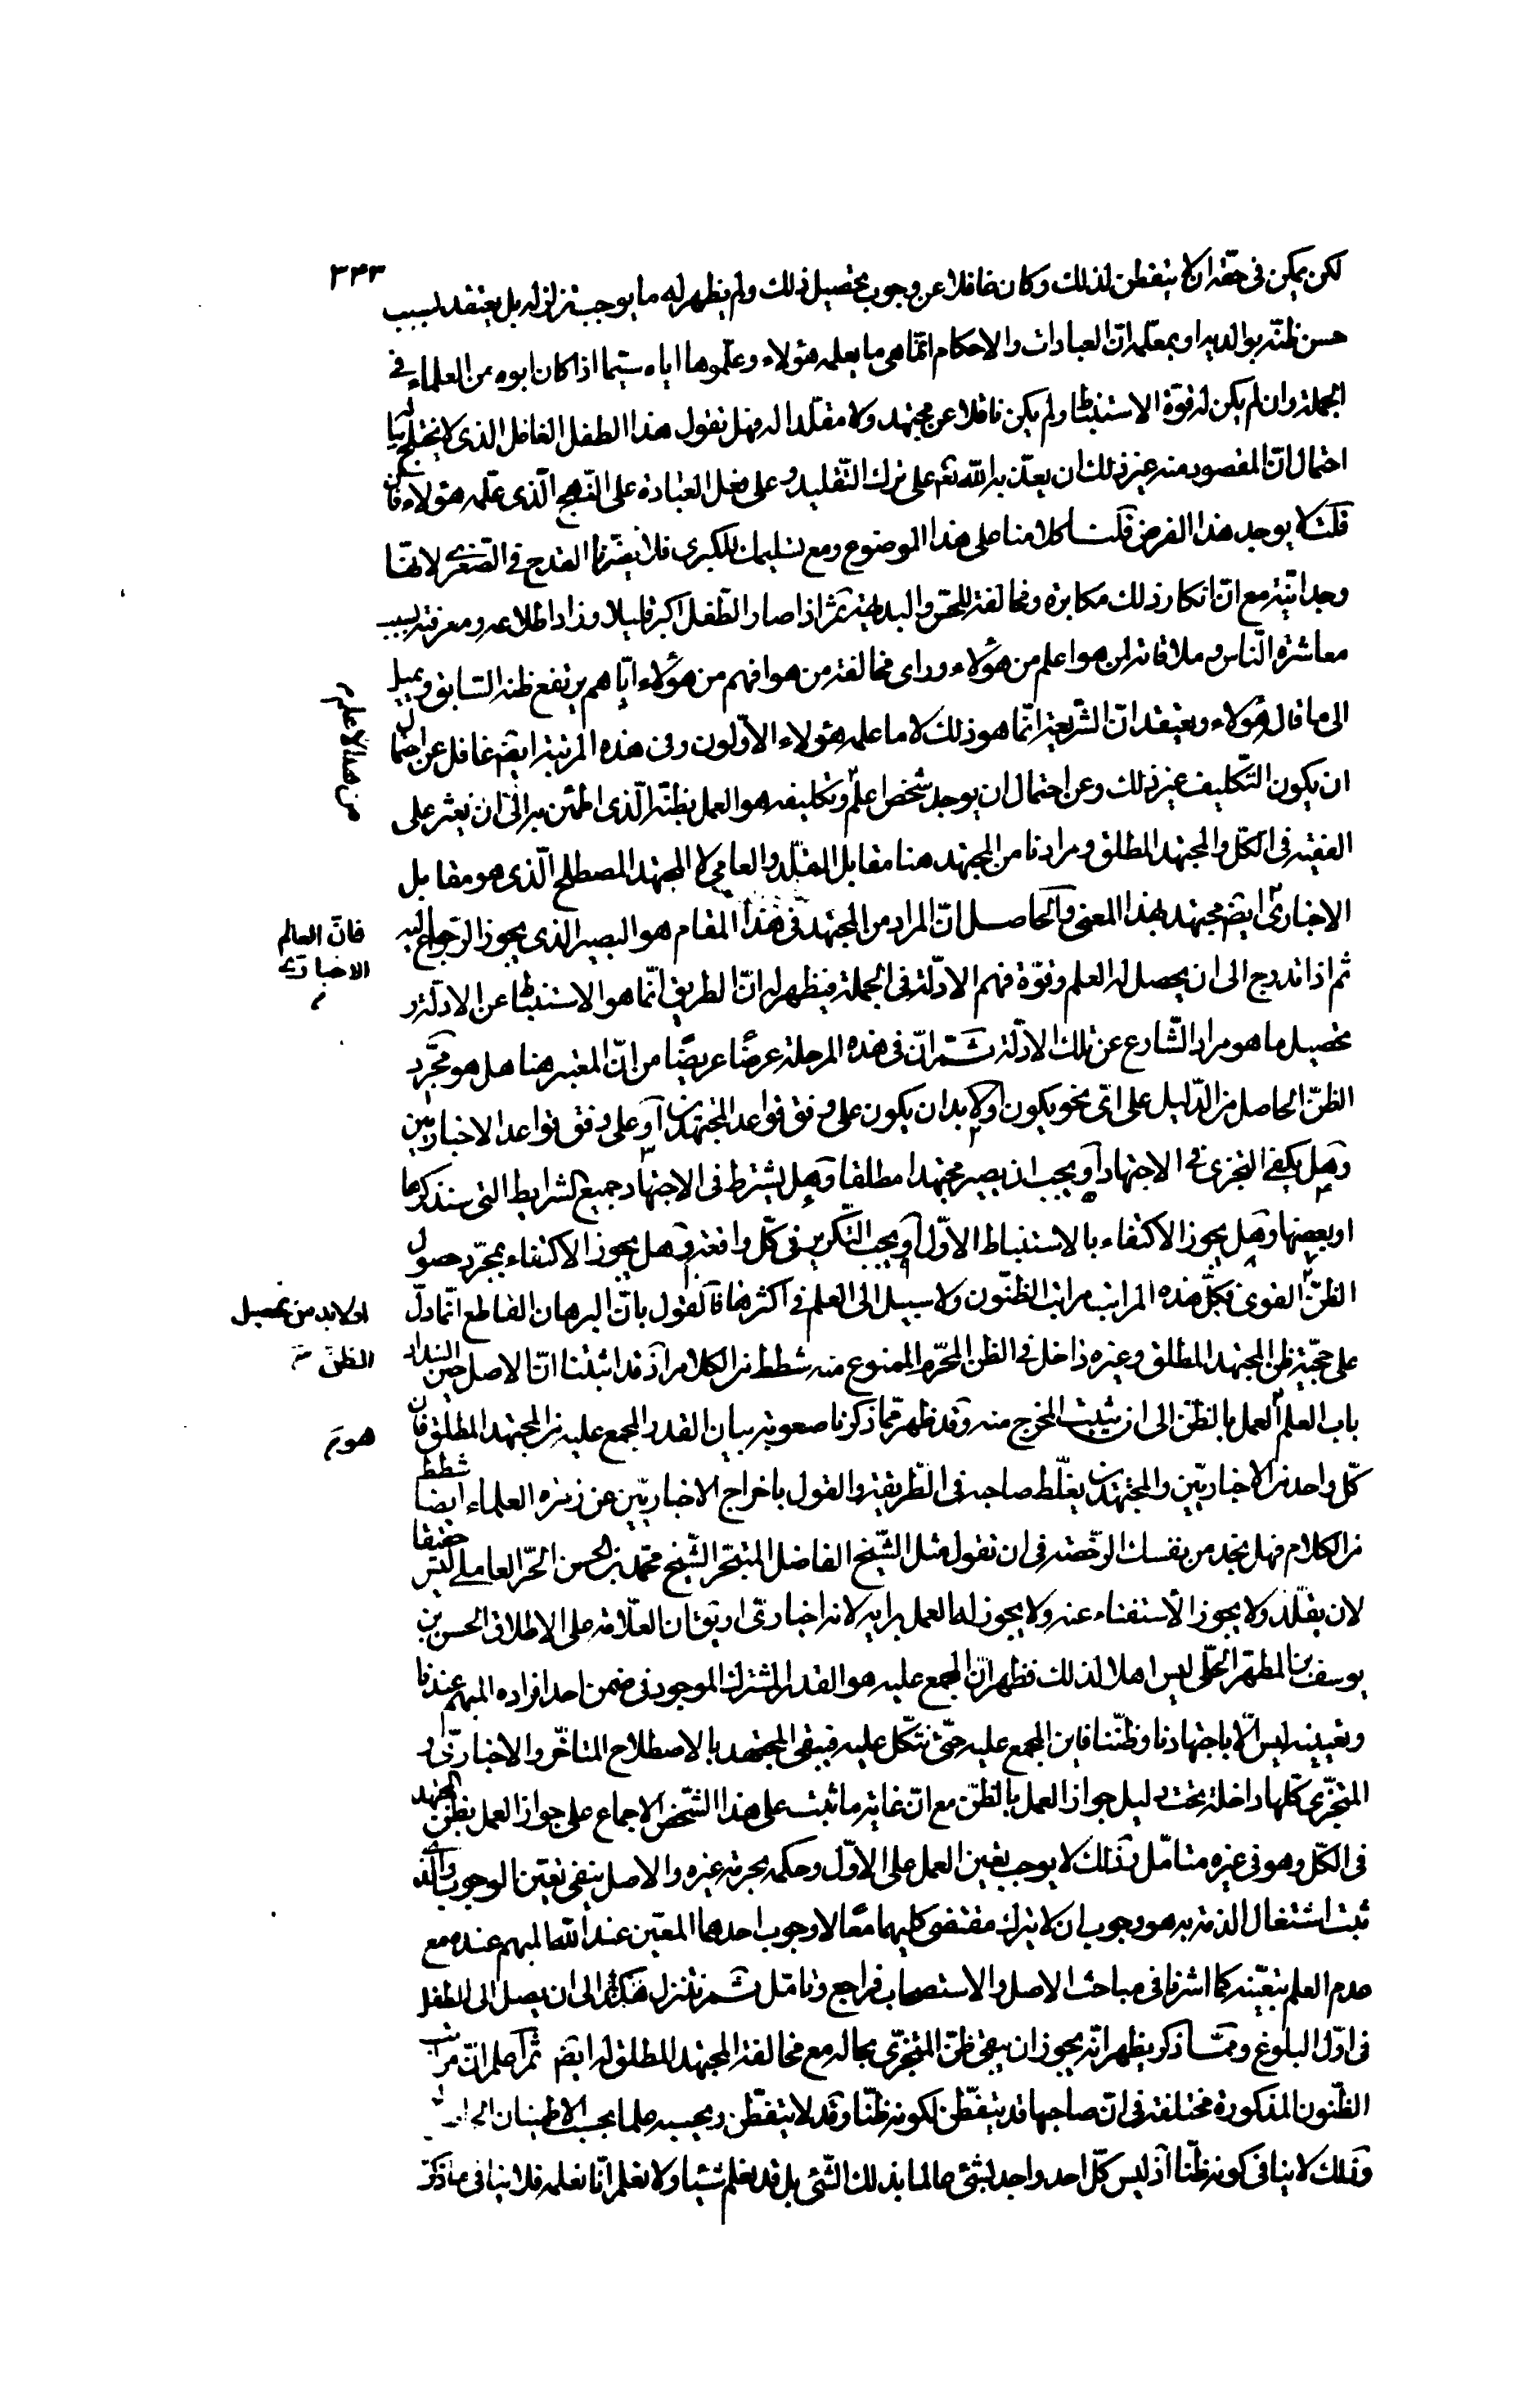 ٣٤٣
لكن يمكن فى حقه ان لا يتفطن لذلك وكان غافلا عن وجوب تحصيل ذلك ولم يظهر له ما يوجب تزلزله بل يعتقد بسبب
حسن ظنّه بوالديه او بمعلّمه انّ العبادات والاحكام انّما هى ما يعلمه هؤلاء وعلّموها اياه سيّما اذا كان ابوه من العلماء فى
الجملة وان لم يكن له قوّة الاستنباط ولم يكن ناقلا عن مجتهد ولا مقلّدا له فهل تقول هذا الطفل الغافل الذى لا يختلج بباله
احتمال انّ المقصود منه غير ذلك ان يعذّبه الله تعم على ترك التّقليد وعلى فعل العبادة على النّهج الّذى علّمه هؤلاء فان
قلت لا يوجد هذا الفرض قلت كلامنا على هذا الموضوع ومع تسليمك للكبرى فلا يضرّنا القدح فى الصّغرى لانّها
وجدانيّة مع انّ انكار ذلك مكابرة ومخالفة للحسّ والبديهة ثم اذا صار الطّفل اكبر قليلا وزاد اطّلاعه ومعرفته بسبب
معاشرة النّاس وملاقاته لمن هو اعلم من هؤلاء وراى مخالفة من هو افهم من هؤلاء ايّاهم يرتفع ظنه السّابق ويميل
الى ما قال هؤلاء ويعتقد انّ الشّريعة انّما هو ذلك لا ما علمه هؤلاء الاوّلون وفى هذه المرتبة ايضم غافل عن احتمال
ان يكون التّكليف غير ذلك وعن احتمال ان يوجد شخص اعلم وتكليفه هو العمل بظنّه الّذى اطمئن به الى ان يعثر على
من هذا الاعلم
الفقيه فى الكلّ والمجتهد المطلق ومرادنا من المجتهد هنا مقابل المقلّد والعامى لا المجتهد المصطلح الّذى هو مقابل
الاخبارى ايضم مجتهد بهذا المعنى والحاصل انّ المراد من المجتهد فى هذا المقام هو البصير الذى يجوز الرّجوع اليه
فانّ العالم
الاخبارى
ثم اذا تدرج الى ان يحصل له العلم وقوّة فهم الادلّة فى الجملة فيظهر له انّ الطريق انّما هو الاستنباط عن الادلّة و
تحصيل ما هو مراد الشّارع عن تلك الادلّة ثم انّ فى هذه المرحلة عرضًا عريضًا من انّ المعتبر هنا هل هو مجرّد
الظنّ الحاصل من الدّليل على اىّ نحو يكون او لا بد ان يكون على وفق قواعد المجتهدين او على وفق قواعد الاخباريين
وهل يكفى التجزى فى الاجتهاد او يجب ان يصير مجتهدا مطلقا وهل يشترط فى الاجتهاد جميع الشرايط التى سنذكرها
او بعضها وهل يجوز الاكتفاء بالاستنباط الاوّل او يجب التّكرير فى كلّ واقعة وهل يجوز الاكتفاء بمجرّد حصول
الظنّ القوى فكلّ هذه المراتب مراتب الظنّون ولا سبيل الى العلم فى اكثرها فالقول بانّ البرهان القاطع انّما دلّ
او لا بد من تحصيل
الظنّ
على حجّية ظن المجتهد المطلق وغيره داخل فى الظن المحرّم الممنوع منه شطط من الكلام اذ قد اثبتنا انّ الاصل حين انسداد
باب العلم العمل بالظنّ الى ان يثبت المخرج منه وقد ظهر ممّا ذكرنا صعوبة بيان القدر المجمع عليه من المجتهد المطلق فان
هو
كلّ واحد من الاخباريّين والمجتهدين يغلّط صاحبه فى الطّريقة والقول باخراج الاخباريّين عن زمرة العلماء ايضا شطط
من الكلام فهل تجد من نفسك الرّخصة فى ان تقول مثل الشّيخ الفاضل المتبحّر الشّيخ محمّد بن الحسن الحرّ العاملى ليس حقيقا
لان يقلّد ولا يجوز الاستفتاء عنه ولا يجوز له العمل برايه لانه اخبارى او تقول ان العلّامة على الاطلاق الحسن بن
يوسف بن المطهّر الحلّى ليس اهلا لذلك فظهر انّ المجمع عليه هو القدر المشترك الموجود فى ضمن احد افراده المبهم عندنا
وتعيينه ليس الّا باجتهادنا وظنّنا فاين المجمع عليه حتّى نتّكل عليه فيبقى المجتهد بالاصطلاح المتاخّر والاخبارى و
المتجزّى كلّها داخلة تحت دليل جواز العمل بالظنّ مع انّ غاية ما ثبت على هذا الشّخص الاجماع على جواز العمل بظنّ المجتهد
فى الكلّ وهو فى غيره متامّل وذلك لا يوجب تعين العمل على الاوّل وحكمه بحرمة غيره والاصل ينفى تعيّن الوجوب والّذى
ثبت اشتغال الذمة به هو وجوب ان لا يترك مقتضى كليهما معًا لا وجوب احدهما المعيّن عند الله المبهم عنده مع
عدم العلم بتعيّنه كما اشرنا فى مباحث الاصل والاستصحاب فراجع وتامّل ثم نتنزل هكذا الى ان يصل الى الطفل
فى اوّل البلوغ وممّا ذكر يظهر انّه يجوز ان يبقى ظنّ المتجزّى بحاله مع مخالفة المجتهد المطلق له ايضم ثم اعلم انّ مراتب
الظنّون المذكورة مختلفة فى انّ صاحبها قد يتفطّن لكونه ظنّا وقد لا يتفطّن ويحسبه علما بحسب الاطمينان
وذلك لا ينافى كونه ظنّا اذ ليس كلّ احد واجد لشئ عالما بذلك الشّئ بل قد نعلم شيئا ولا نعلم انّا نعلمه فلا ينافى ما ذكر